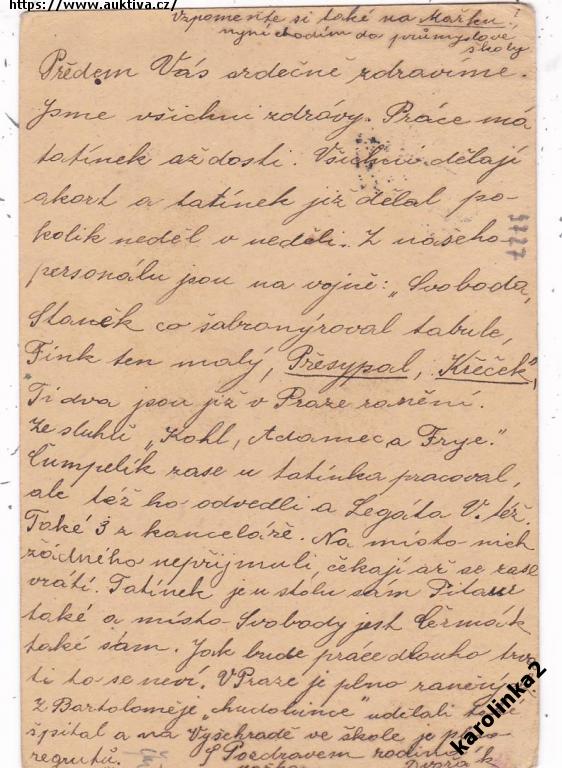 https://www.auktiva.cz/
Vzpomeňte si také na Mařku,
nyní chodím do průmyslové
školy
Předem Vás srdečně zdravíme.
Jsme všichni zdrávy. Práce má
tatínek až dosti. Všichni dělají
akort a tatínek již dělal po-
kolik neděl v neděli. Z našeho
personálu jsou na vojně: „Svoboda,
Staněk co šabronýroval tabule,
Fink ten malý, Přesypal, Křeček",
Ti dva jsou již v Praze ranění.
Ze sluhů „Kohl, Adamec a Frye."
Čumpelík zase u tatínka pracoval,
ale též ho odvedli a Legáta V. též.
Také 3 z kanceláře. Na místo nich
žádného nepřijmuli, čekají až se zase
vrátí. Tatínek je u stolu sám Pitaur
také a místo Svobody jest Čermák
také sám. Jak bude práce dlouho trva
ti to se neví. V Praze je plno raněný
z Bartoloměje „chudobince" udělali
špitál a na Vyšehradě ve škole je
regrutů. S Pozdravem rodina
Dvořák
5727
karolinka2